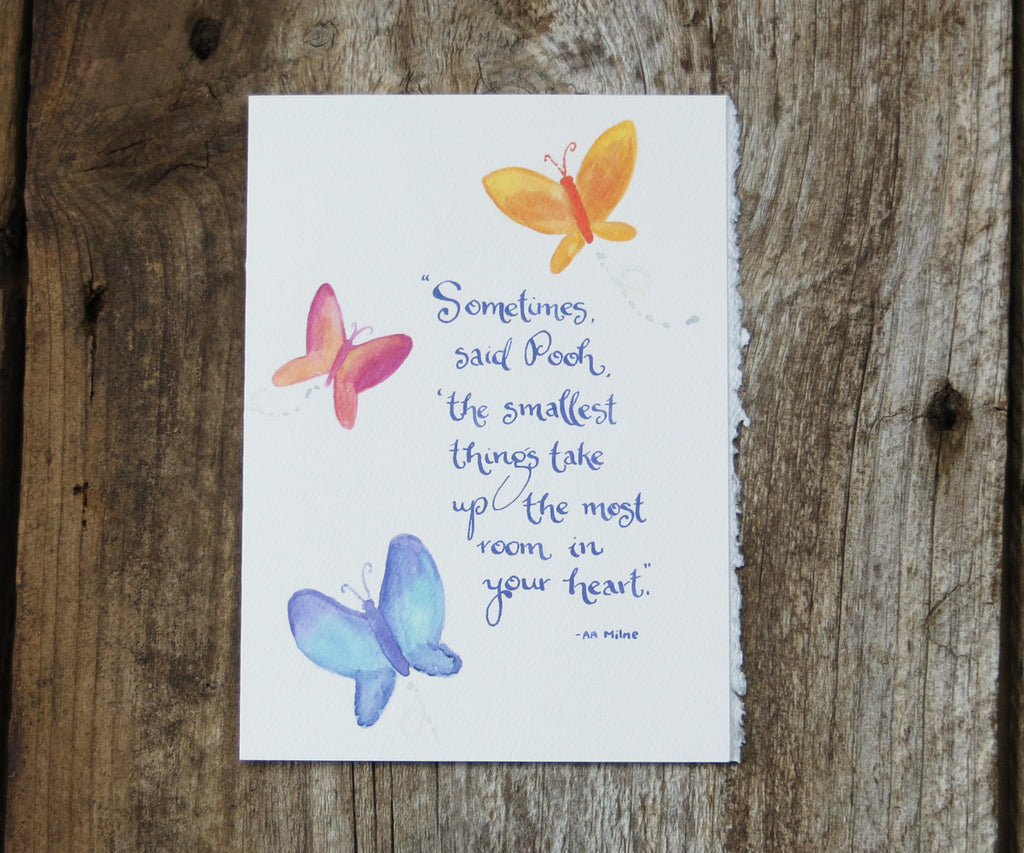 “Sometimes,
said Pooh,
‘the smallest
things take
up the most
room in
your heart.”
-AA Milne